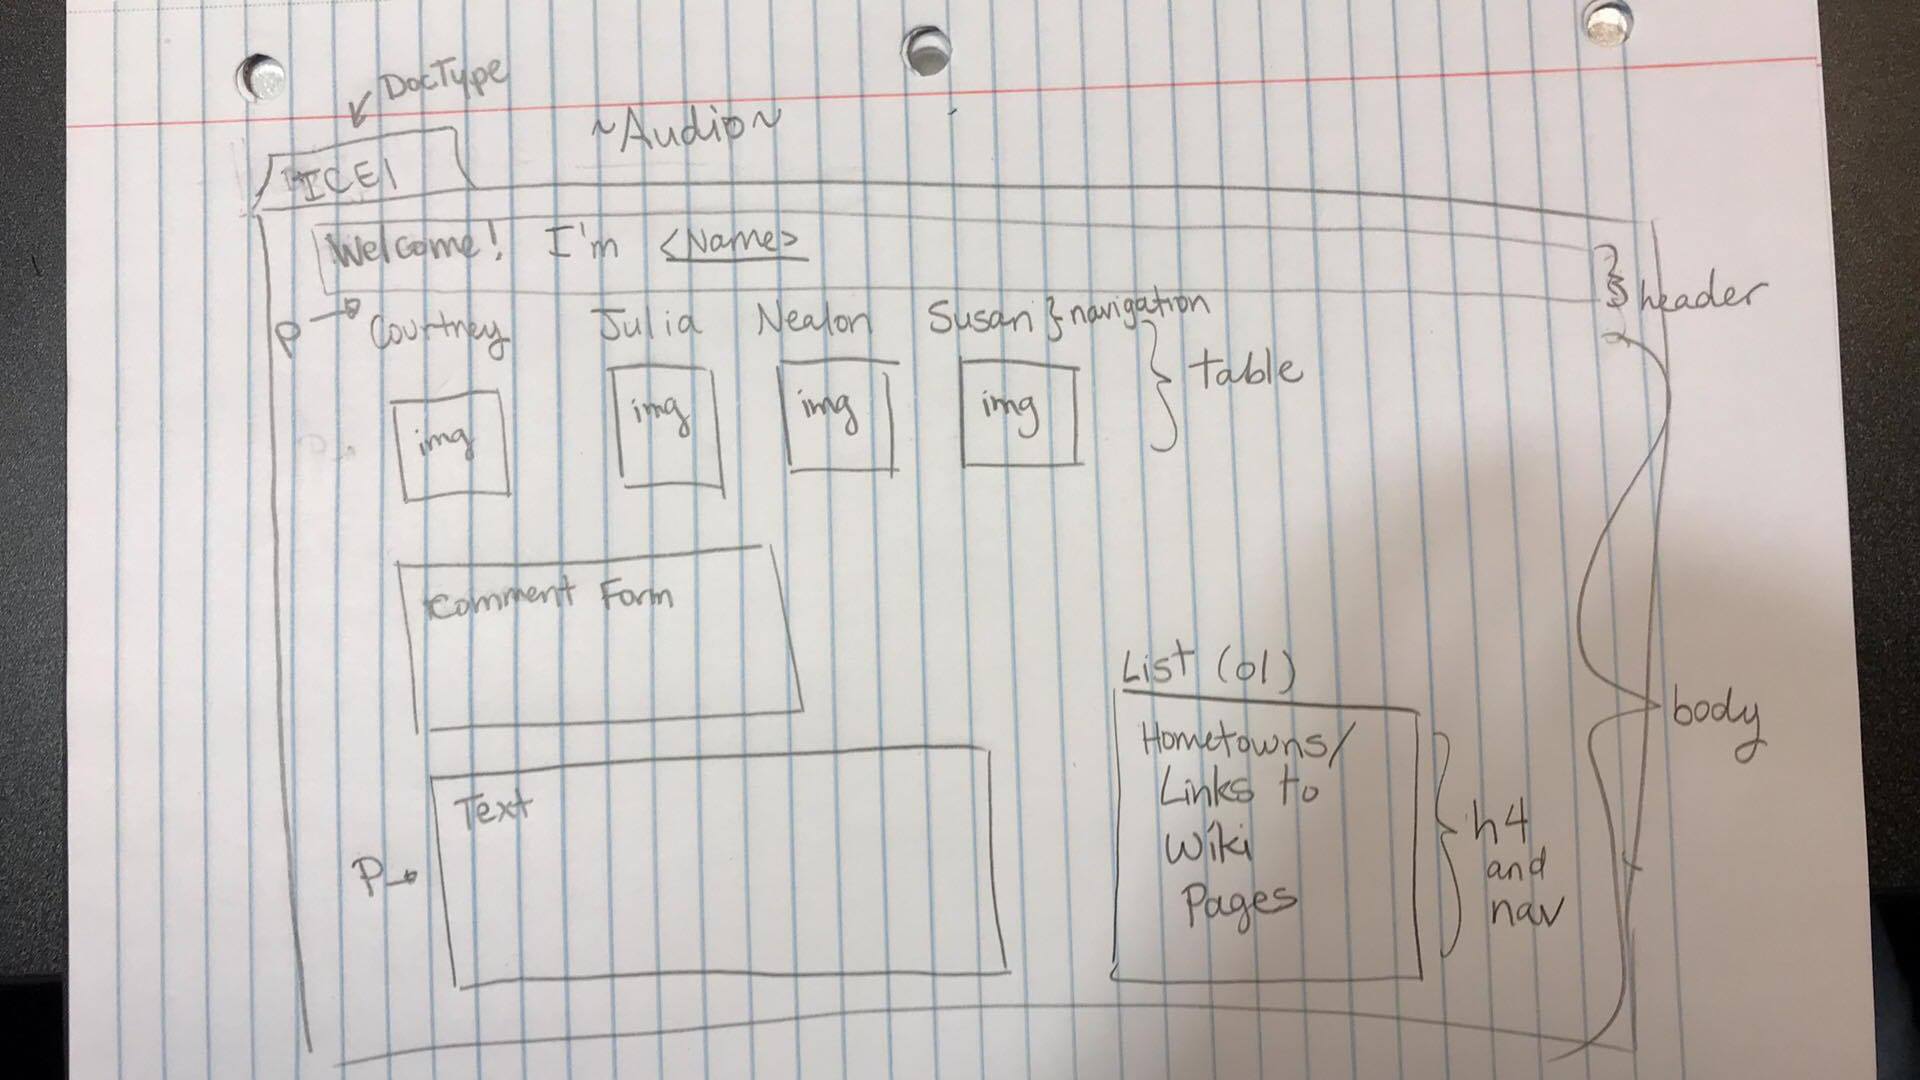 DocType
~Audio~
ICE1
Welcome! I'm <Name>
header
P
Courtney Julia Nealon Susan } navigation
table
img img img img
Comment Form
List (ol)
body
Hometowns/
Links to
Wiki
Pages
h4
and
nav
Text
P